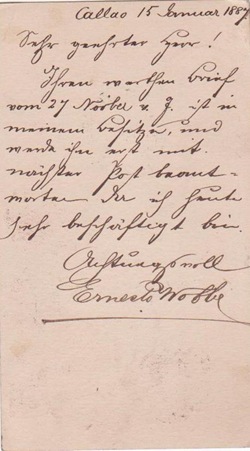 Callao 15 Januar 1887
Sehr geehrter Herr!
Ihren werthen Brief
vom 27 Novbr v. J. ist in
meinem Besitze, und
werde ihn erst mit
nächster Post beant-
worten da ich heute
sehr beschäftigt bin.
Achtungsvoll
Ernesto Wobbe